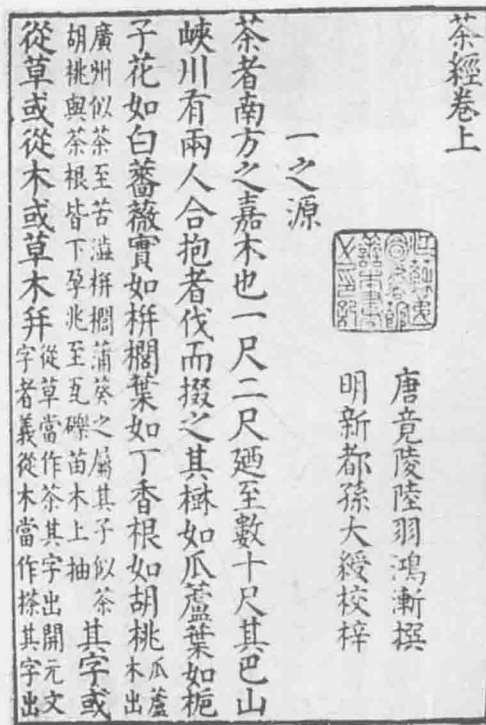 茶經卷上
唐竟陵陸羽鴻漸撰
明新都孫大綬校梓
一之源
茶者南方之嘉木也一尺二尺廼至數十尺其巴山
峽川有兩人合抱者伐而掇之其樹如瓜蘆葉如梔
子花如白薔薇實如栟櫚葉如丁香根如胡桃瓜蘆木出
廣州似茶至苦澁栟櫚蒲葵之屬其子似茶
胡桃與茶根皆下孕兆至瓦礫苗木上抽其字或
從草或從木或草木并從草當作茶其字出開元文
字者義從木當作搽其字出